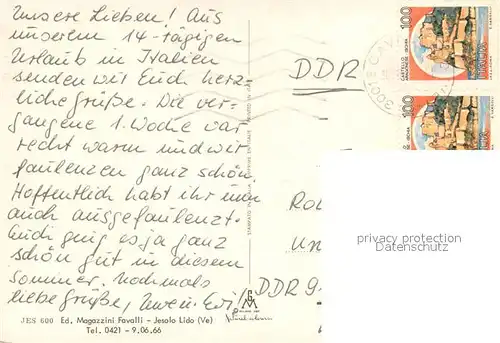 Unsere Lieben! Aus
unserem 14-tägigen
Urlaub in Italien
senden wir Euch herz-
liche Grüße. Die ver-
gangene 1. Woche war
recht warm und wir
faulenzen ganz schön.
Hoffentlich habt ihr nun
auch ausgefaulenzt.
Euch ging es ja ganz
schön gut in diesem
Sommer. Nochmals
liebe Grüße, Uwe u. Evi
JES 600 Ed. Magazzini Favalli - Jesolo Lido (Ve)
Tel. 0421 - 9.06.66
DDR
DDR 9
100
CASTELLO
ARAGONESE - ISCHIA
ITALIA
100
ITALIA
privacy protection
www.ansichtskartenversand.com